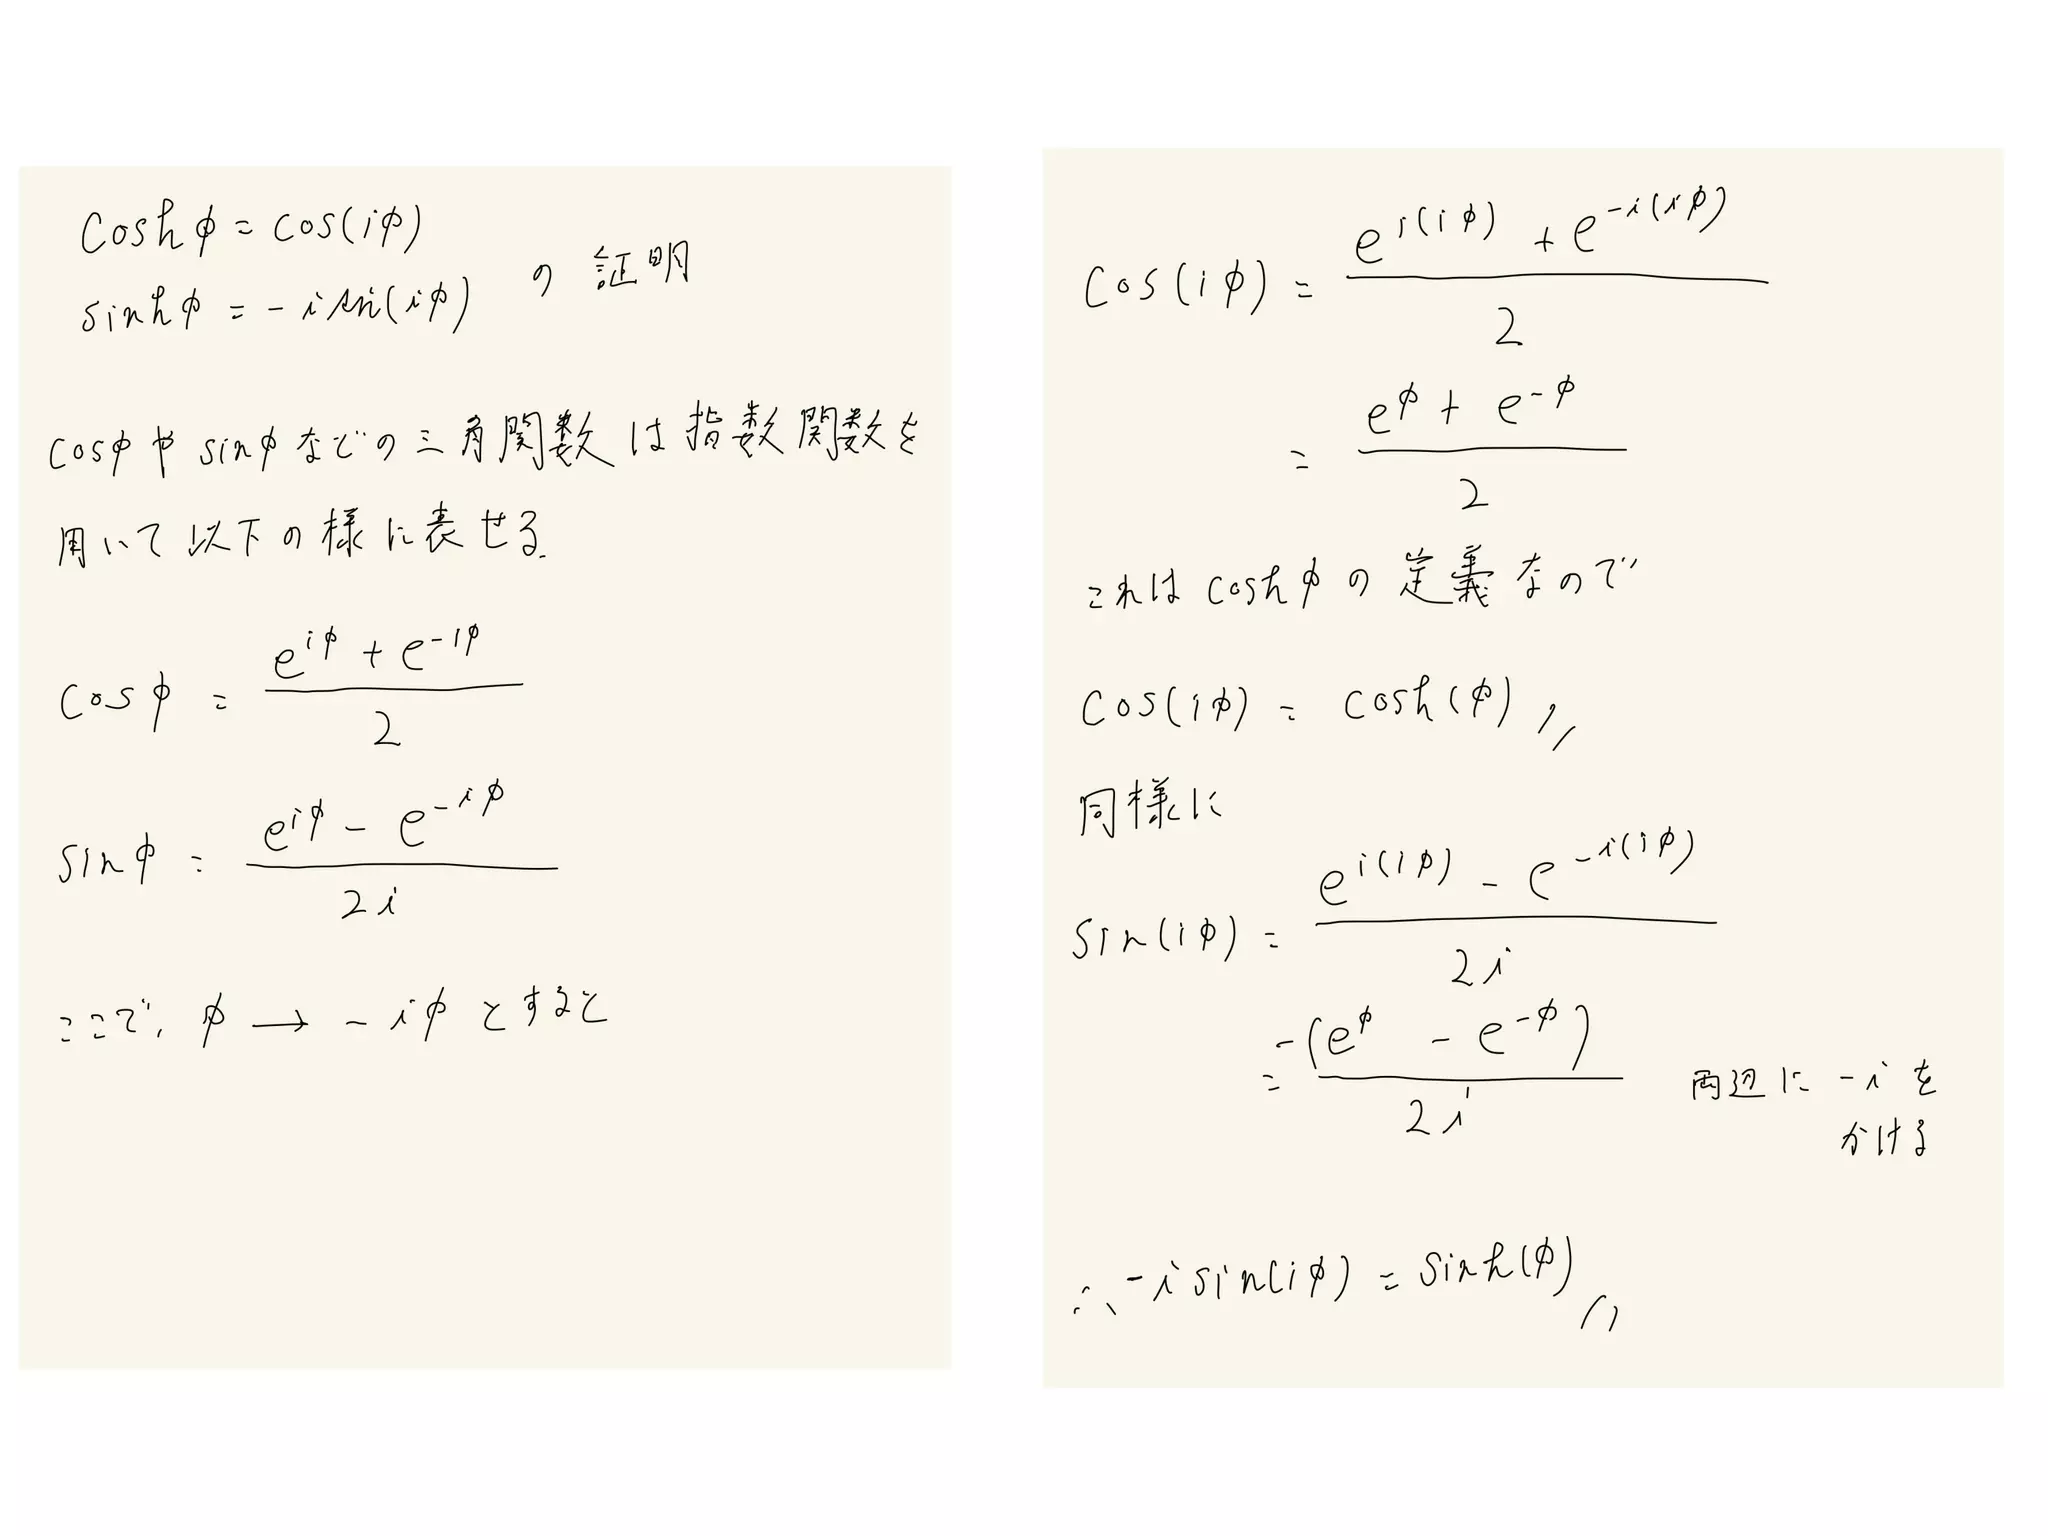 coshφ = cos(iφ)
sinhφ = -i sin(iφ) の証明
cosφや sinφなどの三角関数は指数関数を
用いて以下の様に表せる.
cosφ = (e^{iφ} + e^{-iφ}) / 2
sinφ = (e^{iφ} - e^{-iφ}) / 2i
ここで、φ → -iφ とすると
cos(iφ) = (e^{i(iφ)} + e^{-i(iφ)}) / 2
= (e^φ + e^{-φ}) / 2
これは coshφの定義なので
cos(iφ) = cosh(φ) //
同様に
sin(iφ) = (e^{i(iφ)} - e^{-i(iφ)}) / 2i
= -(e^φ - e^{-φ}) / 2i 両辺に -iを
かける
∴ -i sin(iφ) = sinh(φ) //